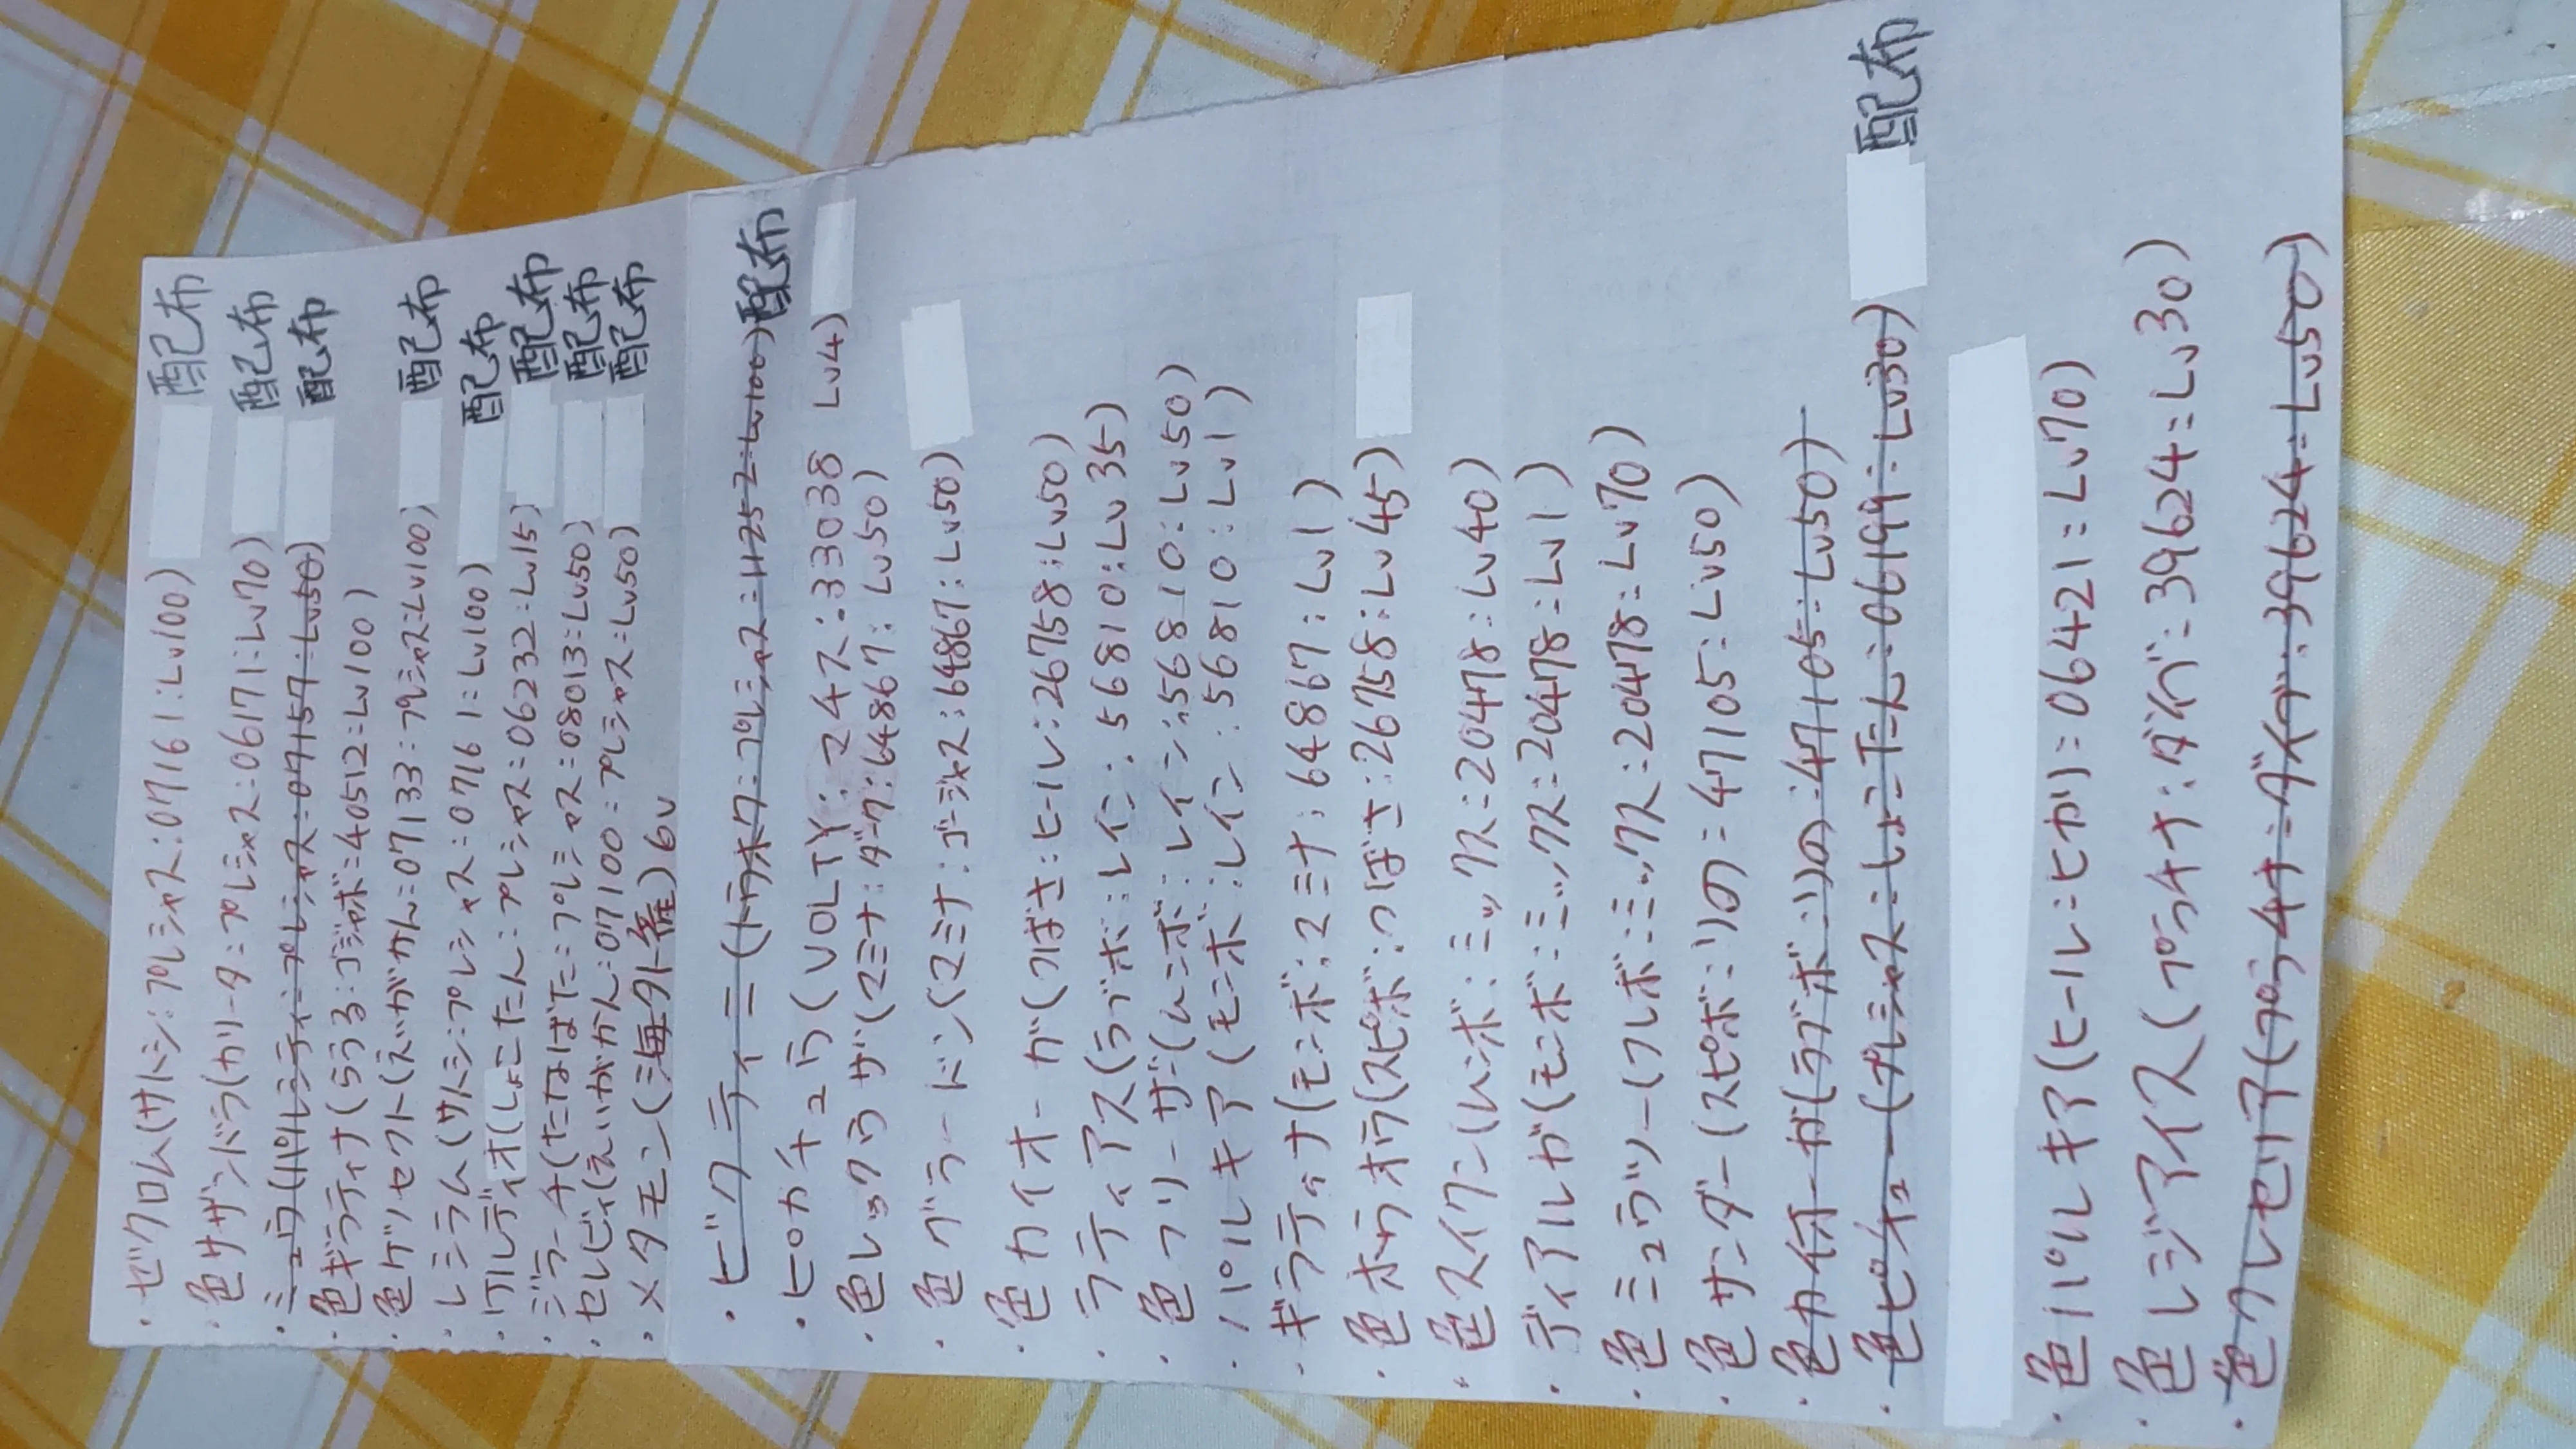 ・ゼクロム(サトシ:プレシャス:07161:Lv100) 配布
・色サザンドラ(カリータ:プレシャス:06171:Lv70) 配布
・ミュウ(パレシティ:プレシャス:07157:Lv50) 配布
・色ギラティナ(らうる:ゴジャボ:40512:Lv100)
・色ゲノセクト(えいがかん:07133:プレシャス:Lv100) 配布
・レシラム(サトシ:プレシャス:07161:Lv100) 配布
・ケルディオ(しょこたん:プレシャス:06232:Lv15) 配布
・ジラーチ(たなばた:プレシャス:08013:Lv50) 配布
・セレビィ(えいがかん:07100:プレシャス:Lv50) 配布
・メタモン(海外産)6v
・ビクティニ(トウホク:プレシャス:11252:Lv100)配布
・ヒカチュウ(VOLTY:マタス:33038 Lv4)
・色レックウザ(マミナ:ダーク:64867:Lv50)
・色グラードン(マミナ:ゴージャス:64867:Lv50)
・色カイオーガ(つばさ:ヒール:26758:Lv50)
・ラティアス(ラブボ:レイン:56810:Lv35)
・色フリーザー(ムンボ:レイン:56810:Lv50)
・パルキア(モンボ:レイン:56810:Lv1)
・ギラティナ(モンボ:マミナ:64867:Lv1)
・色ホウオウ(スピボ:つばさ:26758:Lv45)
・色スイクン(ムンボ:ミックス:20478:Lv40)
・ディアルガ(モンボ:ミックス:20478:Lv1)
・色ミュウツー(フレボ:ミックス:20478:Lv70)
・色サンダー(スピボ:リの:47105:Lv50)
・色カイオーガ(ラブボ:リの:47105:Lv50)
・色ピチュー(プレシャス:しょこたん:06199:Lv30) 配布
・色パルキア(ヒール:ヒカリ:06421:Lv70)
・色レジアイス(プラチナ:ダイブ:39624:Lv30)
・色クレセリア(プラチナ:ダイブ:39624:Lv50)